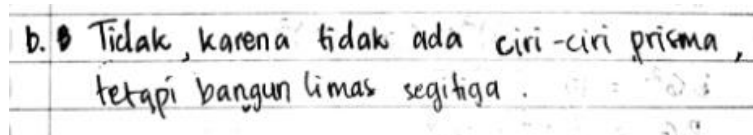 b. Tidak, karena tidak ada ciri-ciri prisma,
tetapi bangun limas segitiga.